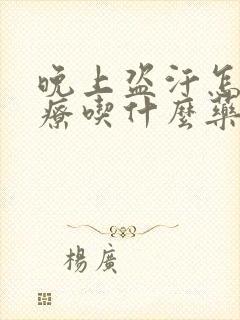 晚上盗汗怎
療喫什麼藥
楊廣